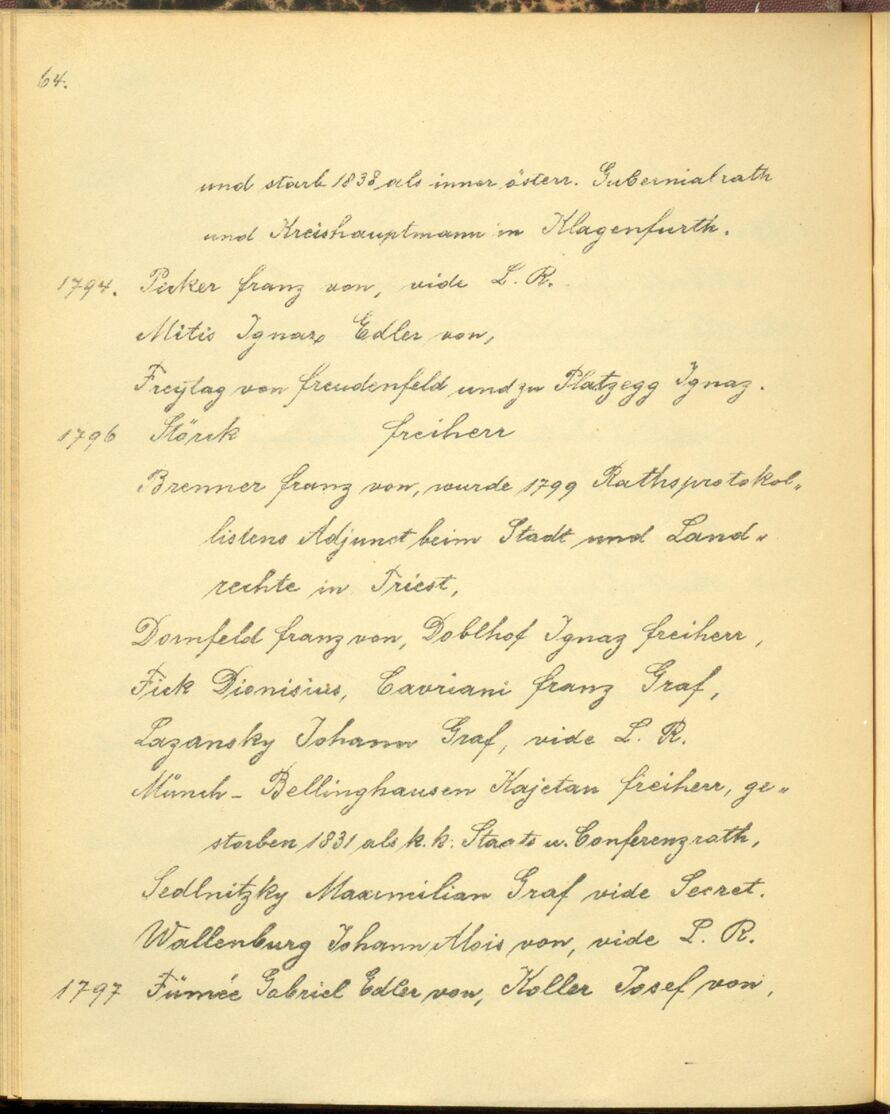 64.
und starb 1838 als inner österr. Gubernialrath
und Kreishauptmann in Klagenfurth.
1794. Franz von, vide L. R.
Mitis Ignaz Edler von,
Freytag von Freudenfeld und zu Platzegg Ignaz.
1796 Störck Freiherr
Brenner Franz von, wurde 1799 Rathsprotokol„
listens Adjunct beim Stadt und Land„
rechte in Triest,
Dornfeld Franz von, Doblhof Ignaz Freiherr,
Fick Dionisius, Cavriani Franz Graf,
Lazansky Johann Graf, vide L. R.
Münch - Bellinghausen Kajetan Freiherr, ge„
storben 1831 als k. k. Staats u. Conferenzrath,
Sedlnitzky Maximilian Graf vide Secret.
Wallenburg Johann Alois von, vide L. R.
1797 Fümée Gabriel Edler von, Koller Josef von,